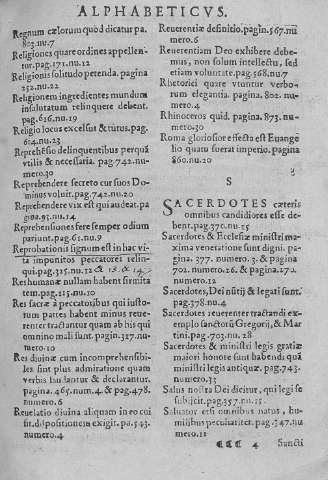 ALPHABETICVS.
Regnum cælorum quod dicatur pa.
803.nu.7
Religiones quare ordines appellen-
tur.pag.171.nu.12
Religionis solitudo petenda. pagina
252.nu.22
Religionem ingredientes mundum
insalutatum relinquere debent.
pag.616.nu.19
Religio locus excelsus & tutus. pag.
614.nu.23
Reprehēsio delinquentibus perquā
vtilis & necessaria. pag.742.nu.
30
Reprehendere secreto cur suos Do-
minus voluit.pag.742.nu.30
Reprehendere vix est qui audeat.pa
gina.93.nu.14
Reprehensiones fere semper odium
pariunt.pag.61.nu.9
Reprobationis signum est in hac vi-
ta impunitos peccatores relin-
qui.pag.315.nu.12 & 13. & 14
Res humanæ nullam habent firmita
tem.pag.115.nu.10
Res sacræ a peccatoribus qui iusto-
rum partes habent minus reue-
renter tractantur quam ab his qui
omnino mali sunt.pagin.317.nu-
mero.10
Res diuinæ cum incomprehensibi-
les sint plus admiratione quam
verbis laudantur & declarantur.
pagina.465.num.4.& pag.478.
numero.6
Reuelatio diuina aliquam in eo cui
fit dispositionem exigit.pa.543.
numero.4
Reuerentiæ definitio.pagin.567.nu
mero.6
Reuerentiam Deo exhibere debe-
mus, non solum intellectu, sed
etiam voluntate.pag.568.nu.7
Rhetorici quare vtuntur verbo-
rum elegantia. pagina. 802. nu-
mero.4
Rhinoceros quid. pagina.873. nu-
mero.30
Roma gloriosior effecta est Euange
lio quam fuerat imperio. pagina
860.nu.20
S
SACERDOTES cæteris
omnibus candidiores esse de-
bent.pag.370.nu.15
Sacerdotes & Ecclesiæ ministri ma-
xima veneratione sunt digni. pa-
gina. 377. numero. 3. & pagina
702. numero.26. & pagina.270.
numero.12
Sacerdotes, Dei nūtij & legati sunt.
pag.378.nu.4
Sacerdotes reuerenter tractandi ex-
emplo sanctorū Gregorij, & Mar
tini.pag.703.nu.28
Sacerdotes & ministri legis gratiæ
maiori honore sunt habendi quā
ministri legis antiquæ. pag.743.
numero.33
Salus nostra Dei dicitur, qui legi se
subijcit.pag.357.nu.15.
Saluator etsi omnibus natus, hu-
milibus peculiariter.pag.347.nu-
mero.11
CCC 4 Sancti